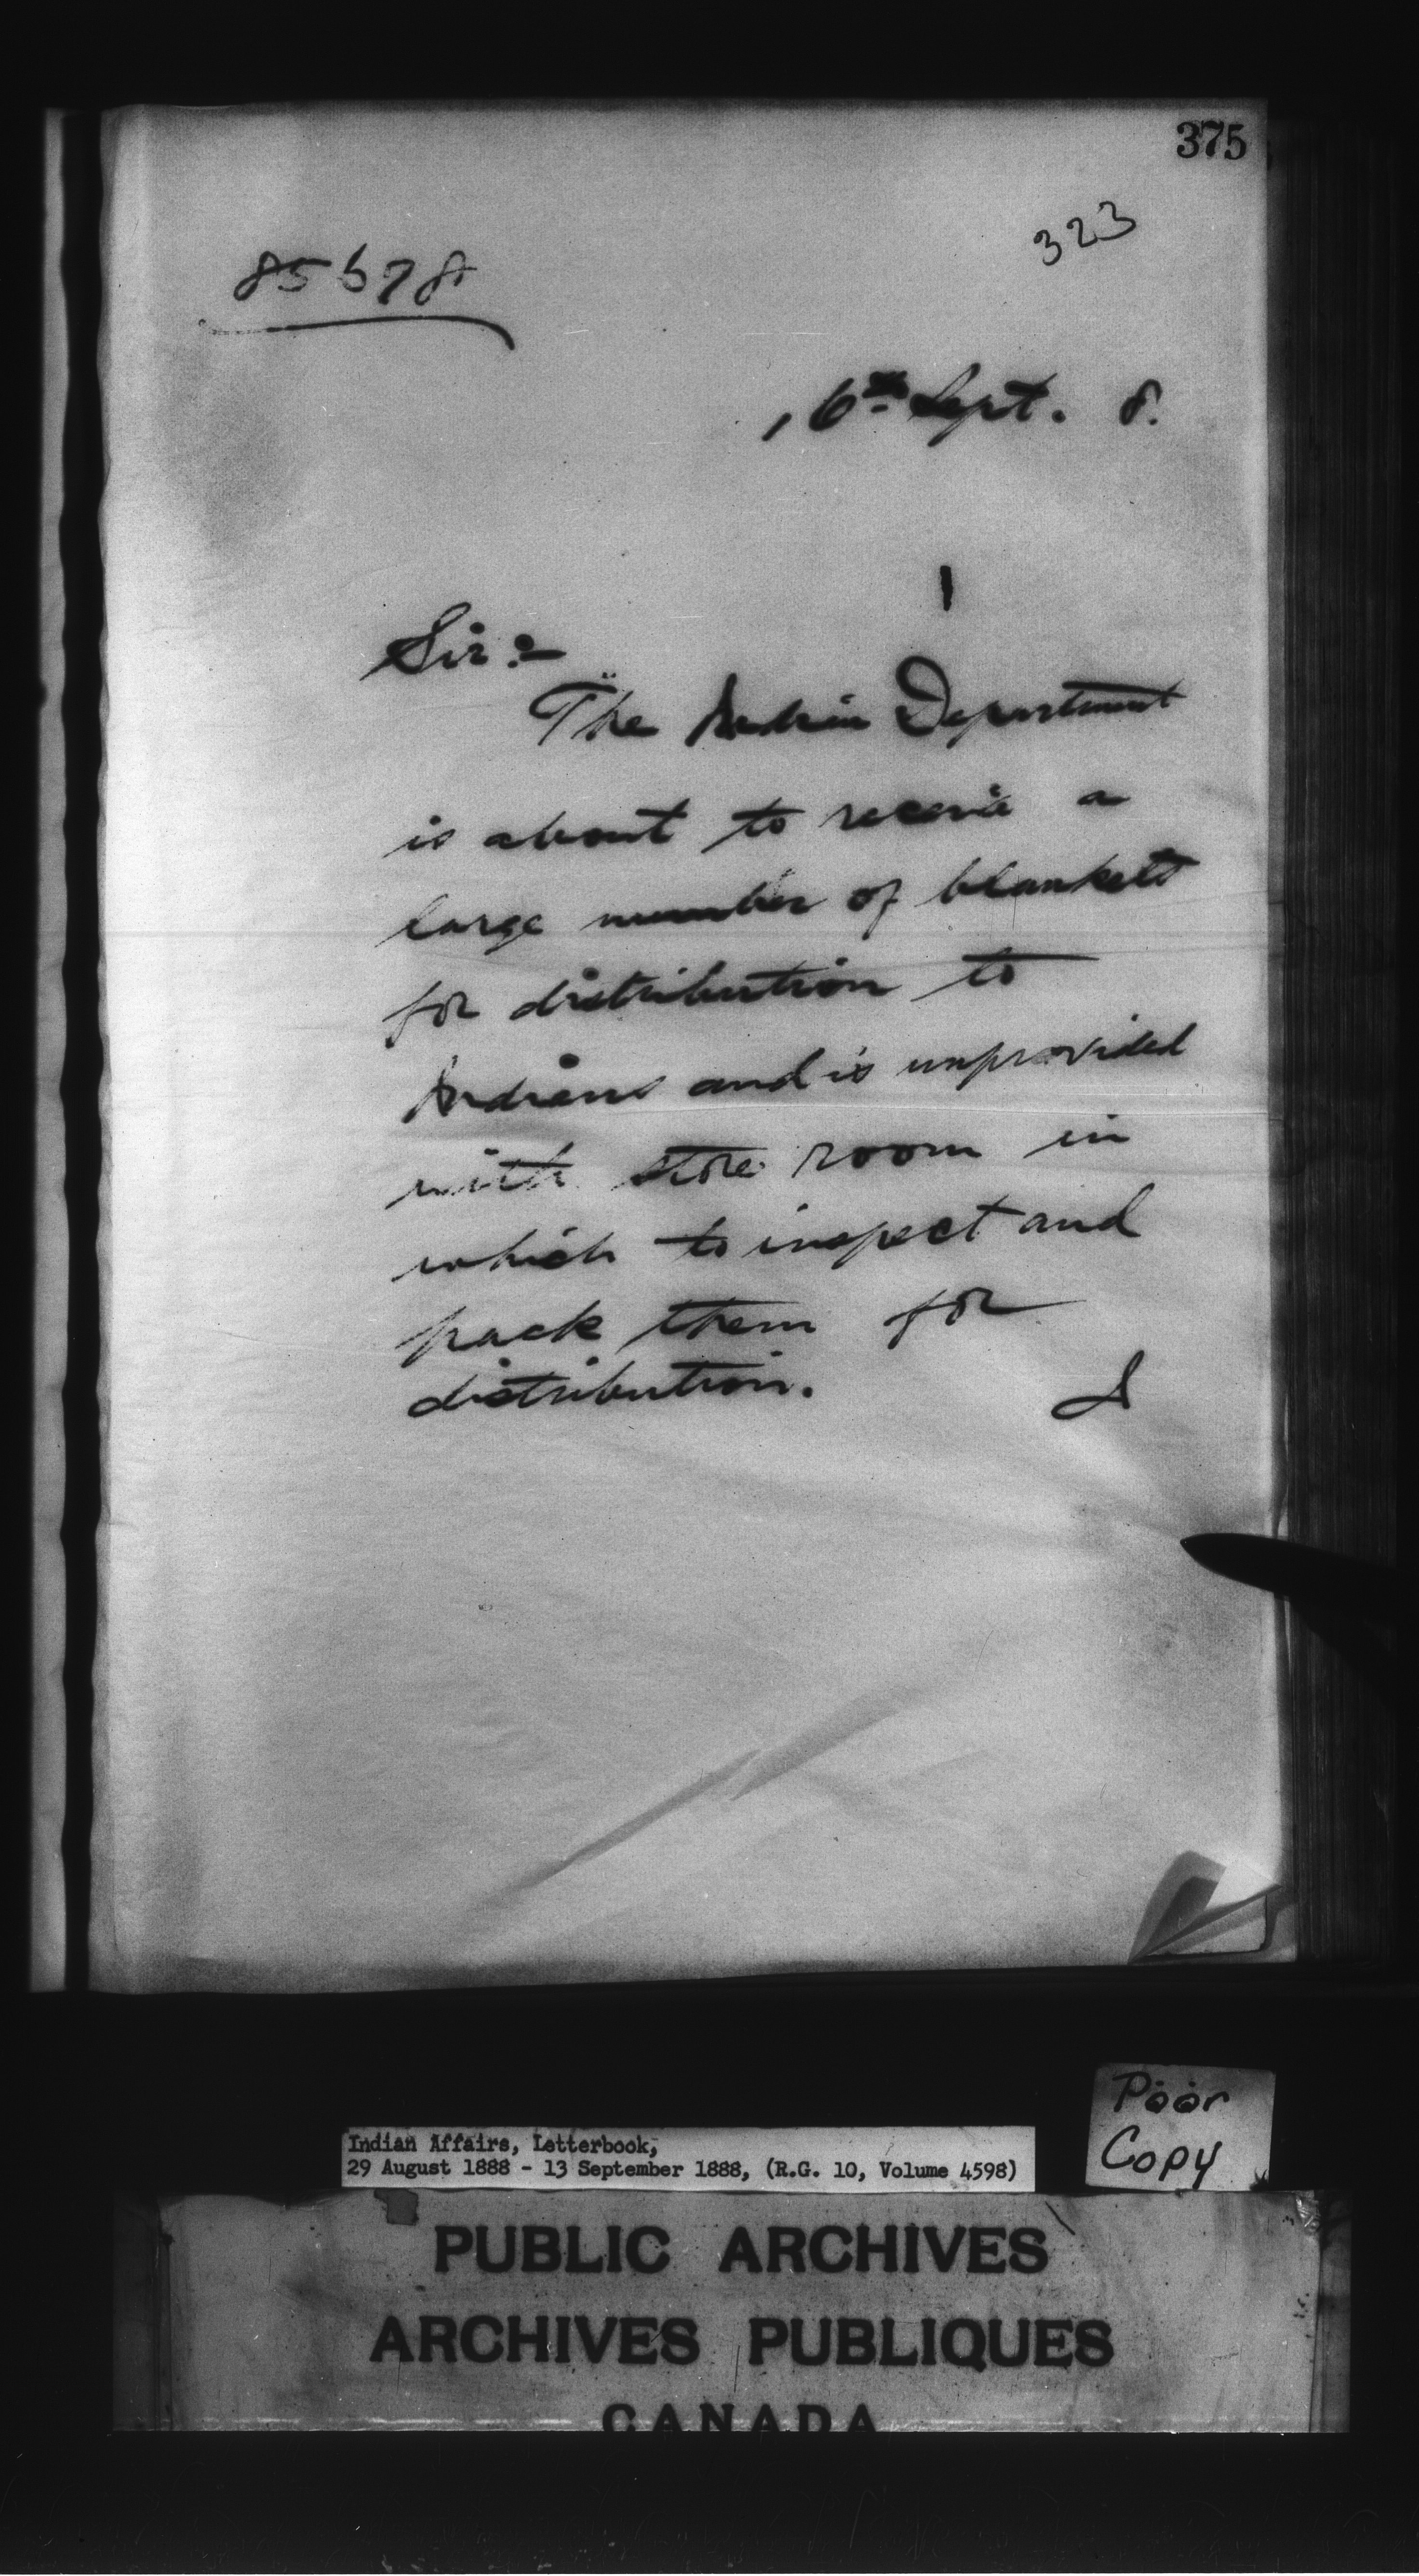 375
323
85678
, 6th Sept. 8.
Sir:-
The Indian Department
is about to receive a
large number of blankets
for distribution to
Indians and is unprovided
with store room in
which to inspect and
pack them for
distribution. I
Poor
Copy
Indian Affairs, Letterbook,
29 August 1888 - 13 September 1888, (R.G. 10, Volume 4598)
PUBLIC ARCHIVES
ARCHIVES PUBLIQUES
CANADA